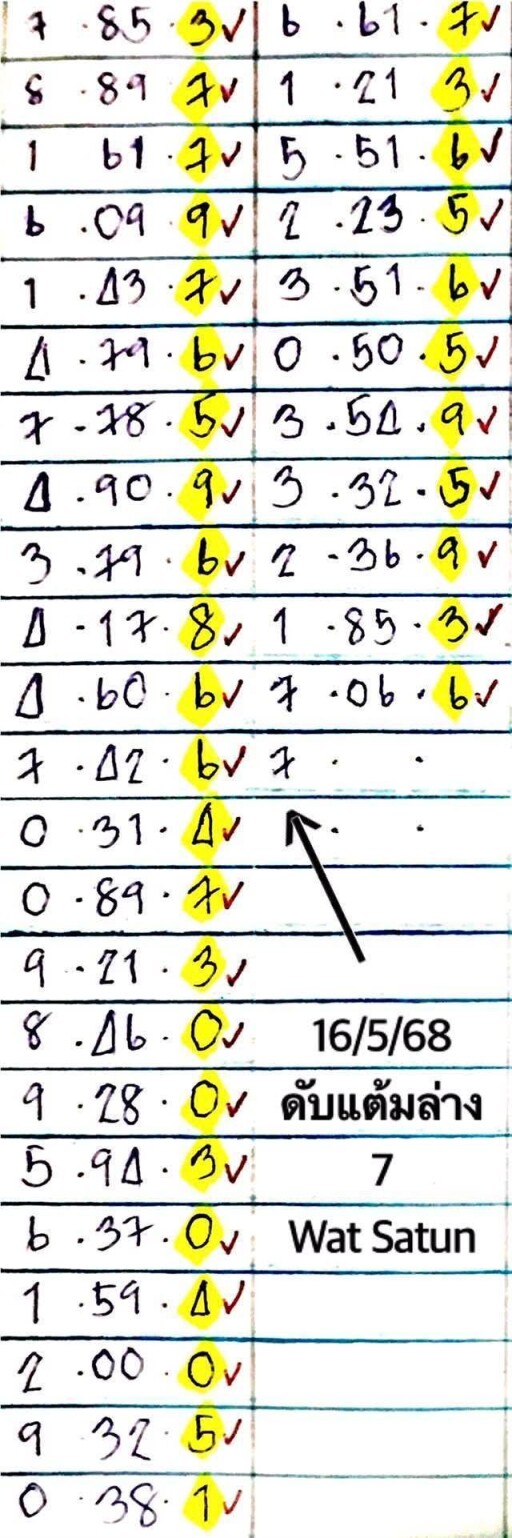 7 . 85 . 3 ✓
8 . 89 7 ✓
1 61 . 7 ✓
6 . 09 9 ✓
1 . 43 . 7 ✓
4 . 79 . 6 ✓
7 - 78 . 5 ✓
4 . 90 . 9 ✓
3 . 79 . 6 ✓
4 - 17 . 8 ✓
4 . 60 . 6 ✓
7 . 42 . 6 ✓
0 . 31 . 4 ✓
0 . 89 . 7 ✓
9 - 21 . 3 ✓
8 . 46 . 0 ✓
9 . 28 . 0 ✓
5 . 94 . 3 ✓
6 . 37 . 0 ✓
1 . 59 . 4 ✓
2 . 00 . 0 ✓
9 32 5 ✓
0 . 38 . 1 ✓
6 . 61 . 7 ✓
1 . 21 3 ✓
5 . 51 . 6 ✓
2 . 23 . 5 ✓
3 . 51 . 6 ✓
0 . 50 . 5 ✓
3 . 54 . 9 ✓
3 . 32 . 5 ✓
2 - 36 . 9 ✓
1 . 85 . 3 ✓
7 . 06 . 6 ✓
7 . .
. .
16/5/68
ดับแต้มล่าง
7
Wat Satun